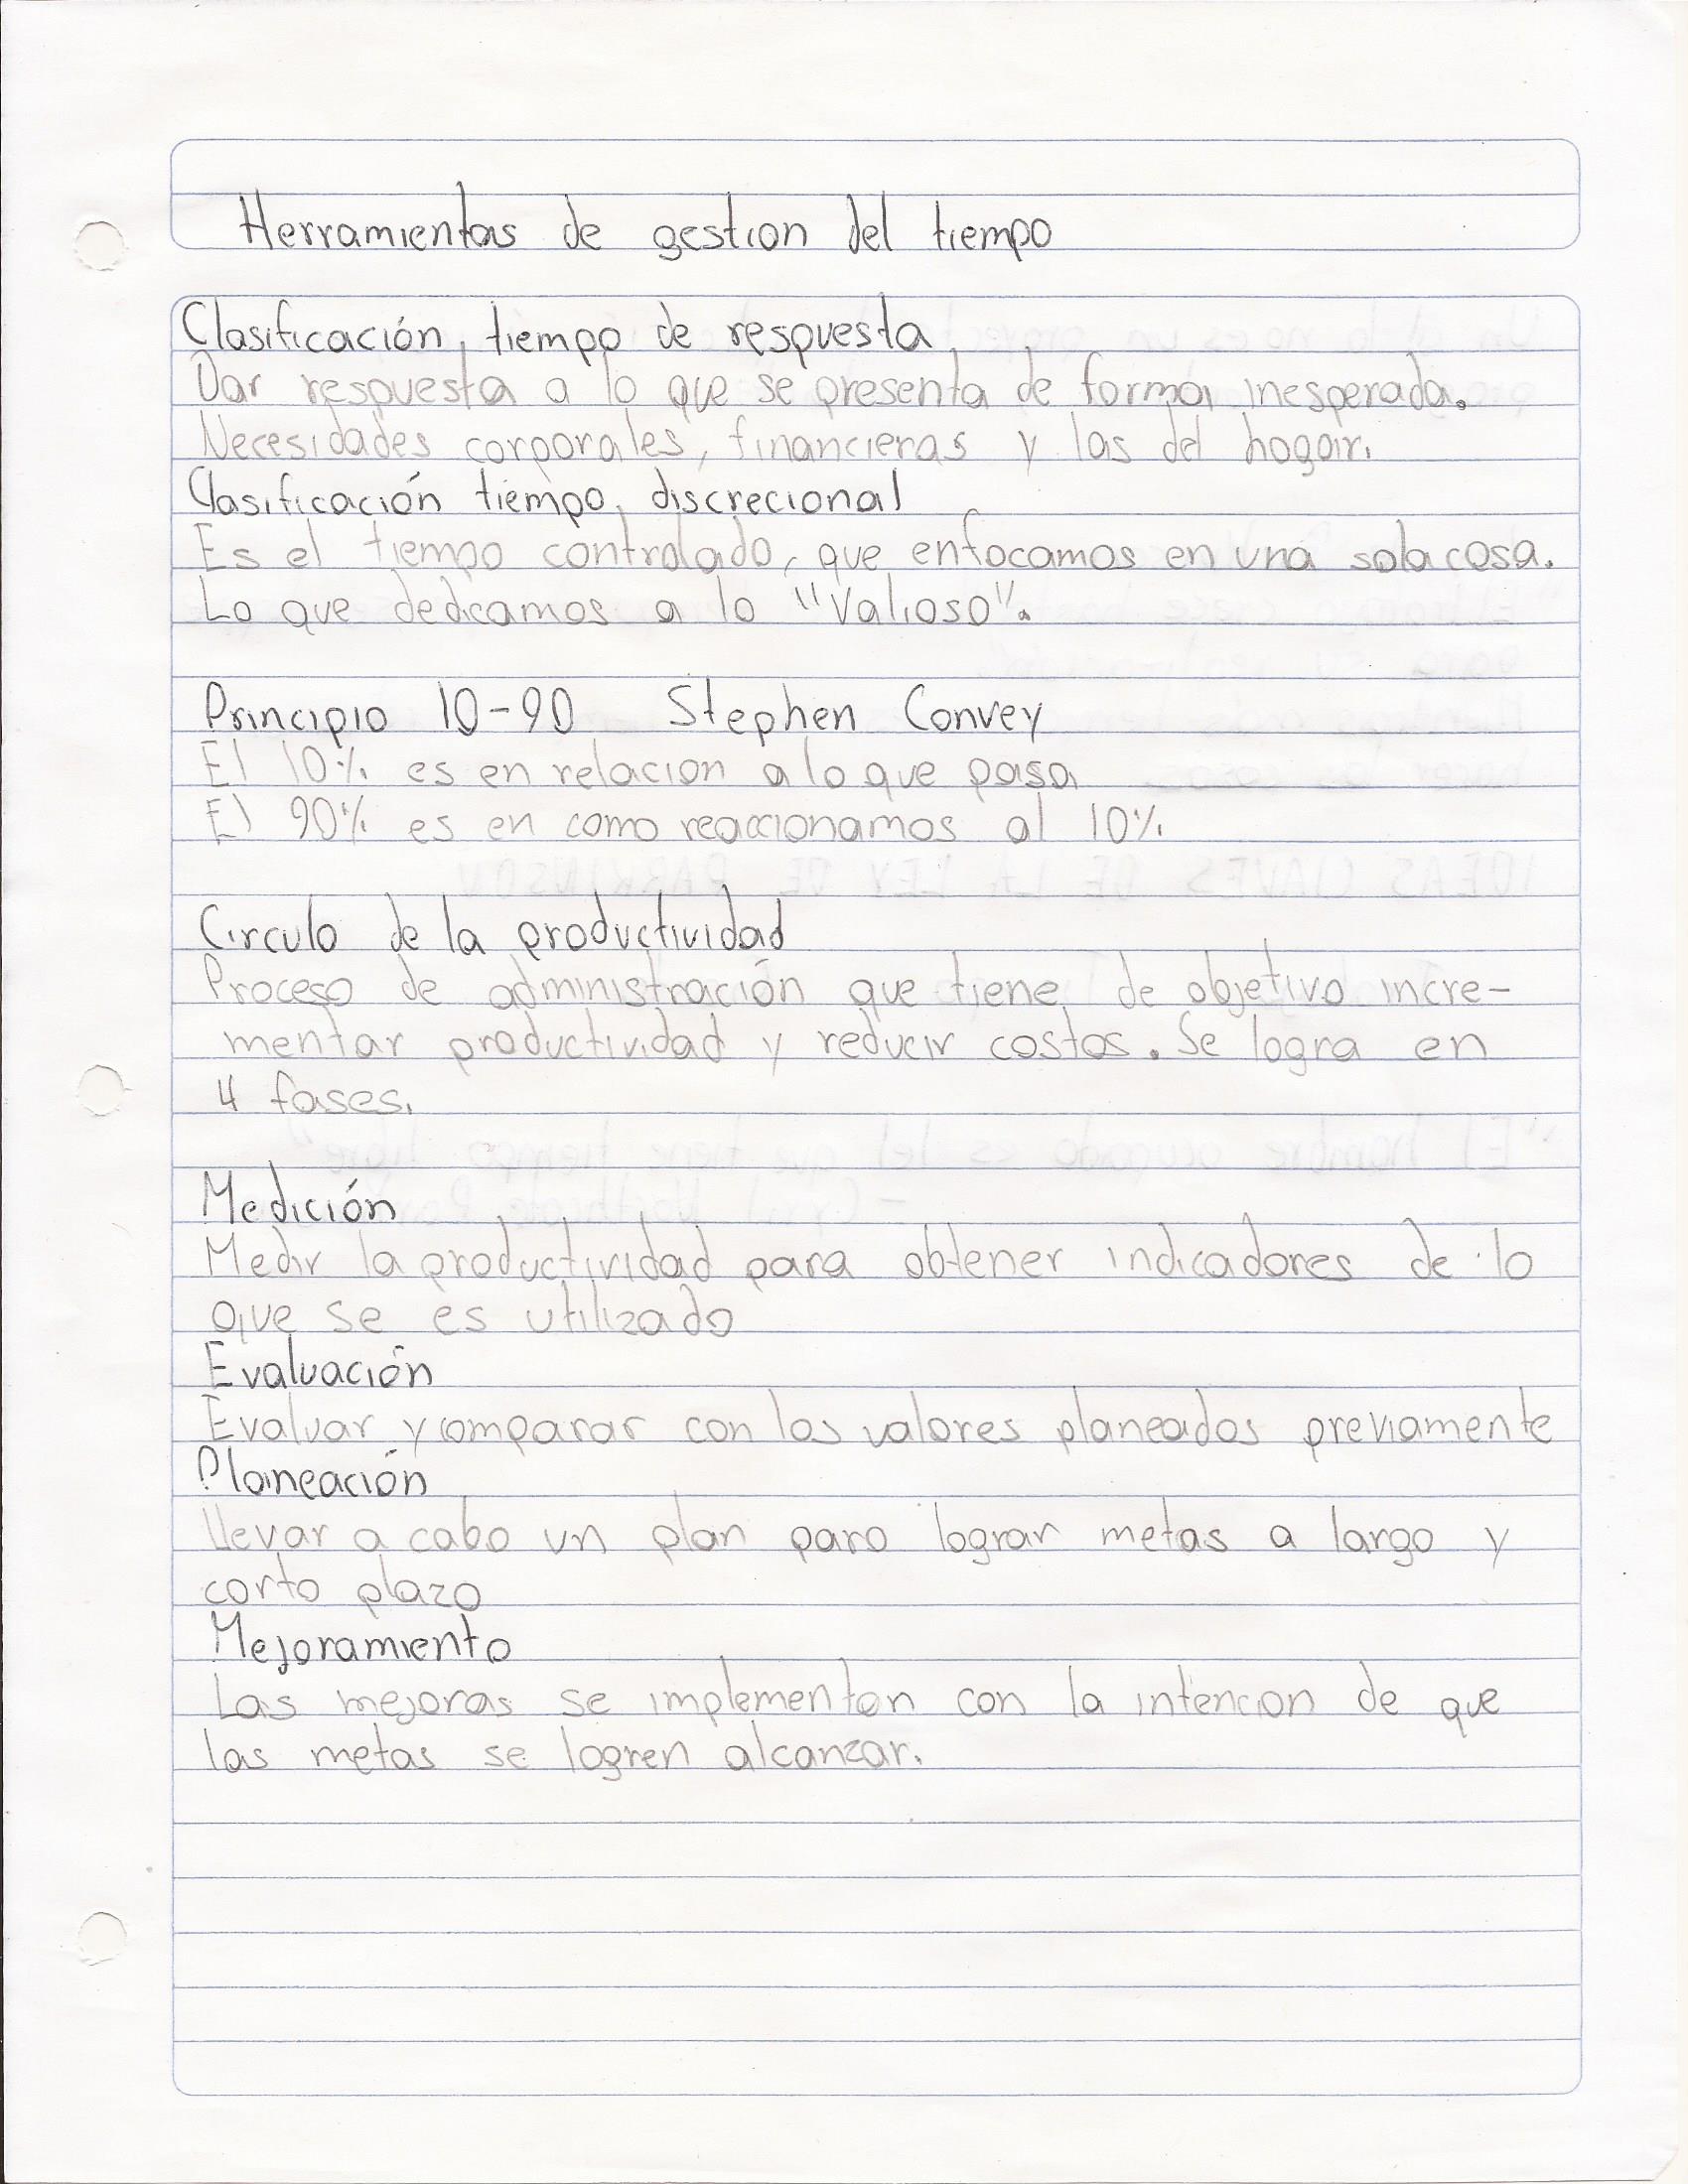 Herramientas de gestion del tiempo
Clasificación, tiempo de respuesta
Dar respuesta a lo que se presenta de forma inesperada.
Necesidades corporales, financieras y las del hogar.
Clasificación tiempo discrecional
Es el tiempo controlado, que enfocamos en una sola cosa.
Lo que dedicamos a lo "Valioso".
Principio 10-90 Stephen Convey
El 10% es en relacion a lo que pasa
El 90% es en como reaccionamos al 10%
Circulo de la productividad
Proceso de administración que tiene de objetivo incre-
mentar productividad y reducir costos. Se logra en
4 fases.
Medición
Medir la productividad para obtener indicadores de lo
que se es utilizado
Evaluación
Evaluar y comparar con los valores planeados previamente
Planeación
llevar a cabo un plan para lograr metas a largo y
corto plazo
Mejoramiento
Las mejoras se implementan con la intencion de que
las metas se logren alcanzar.